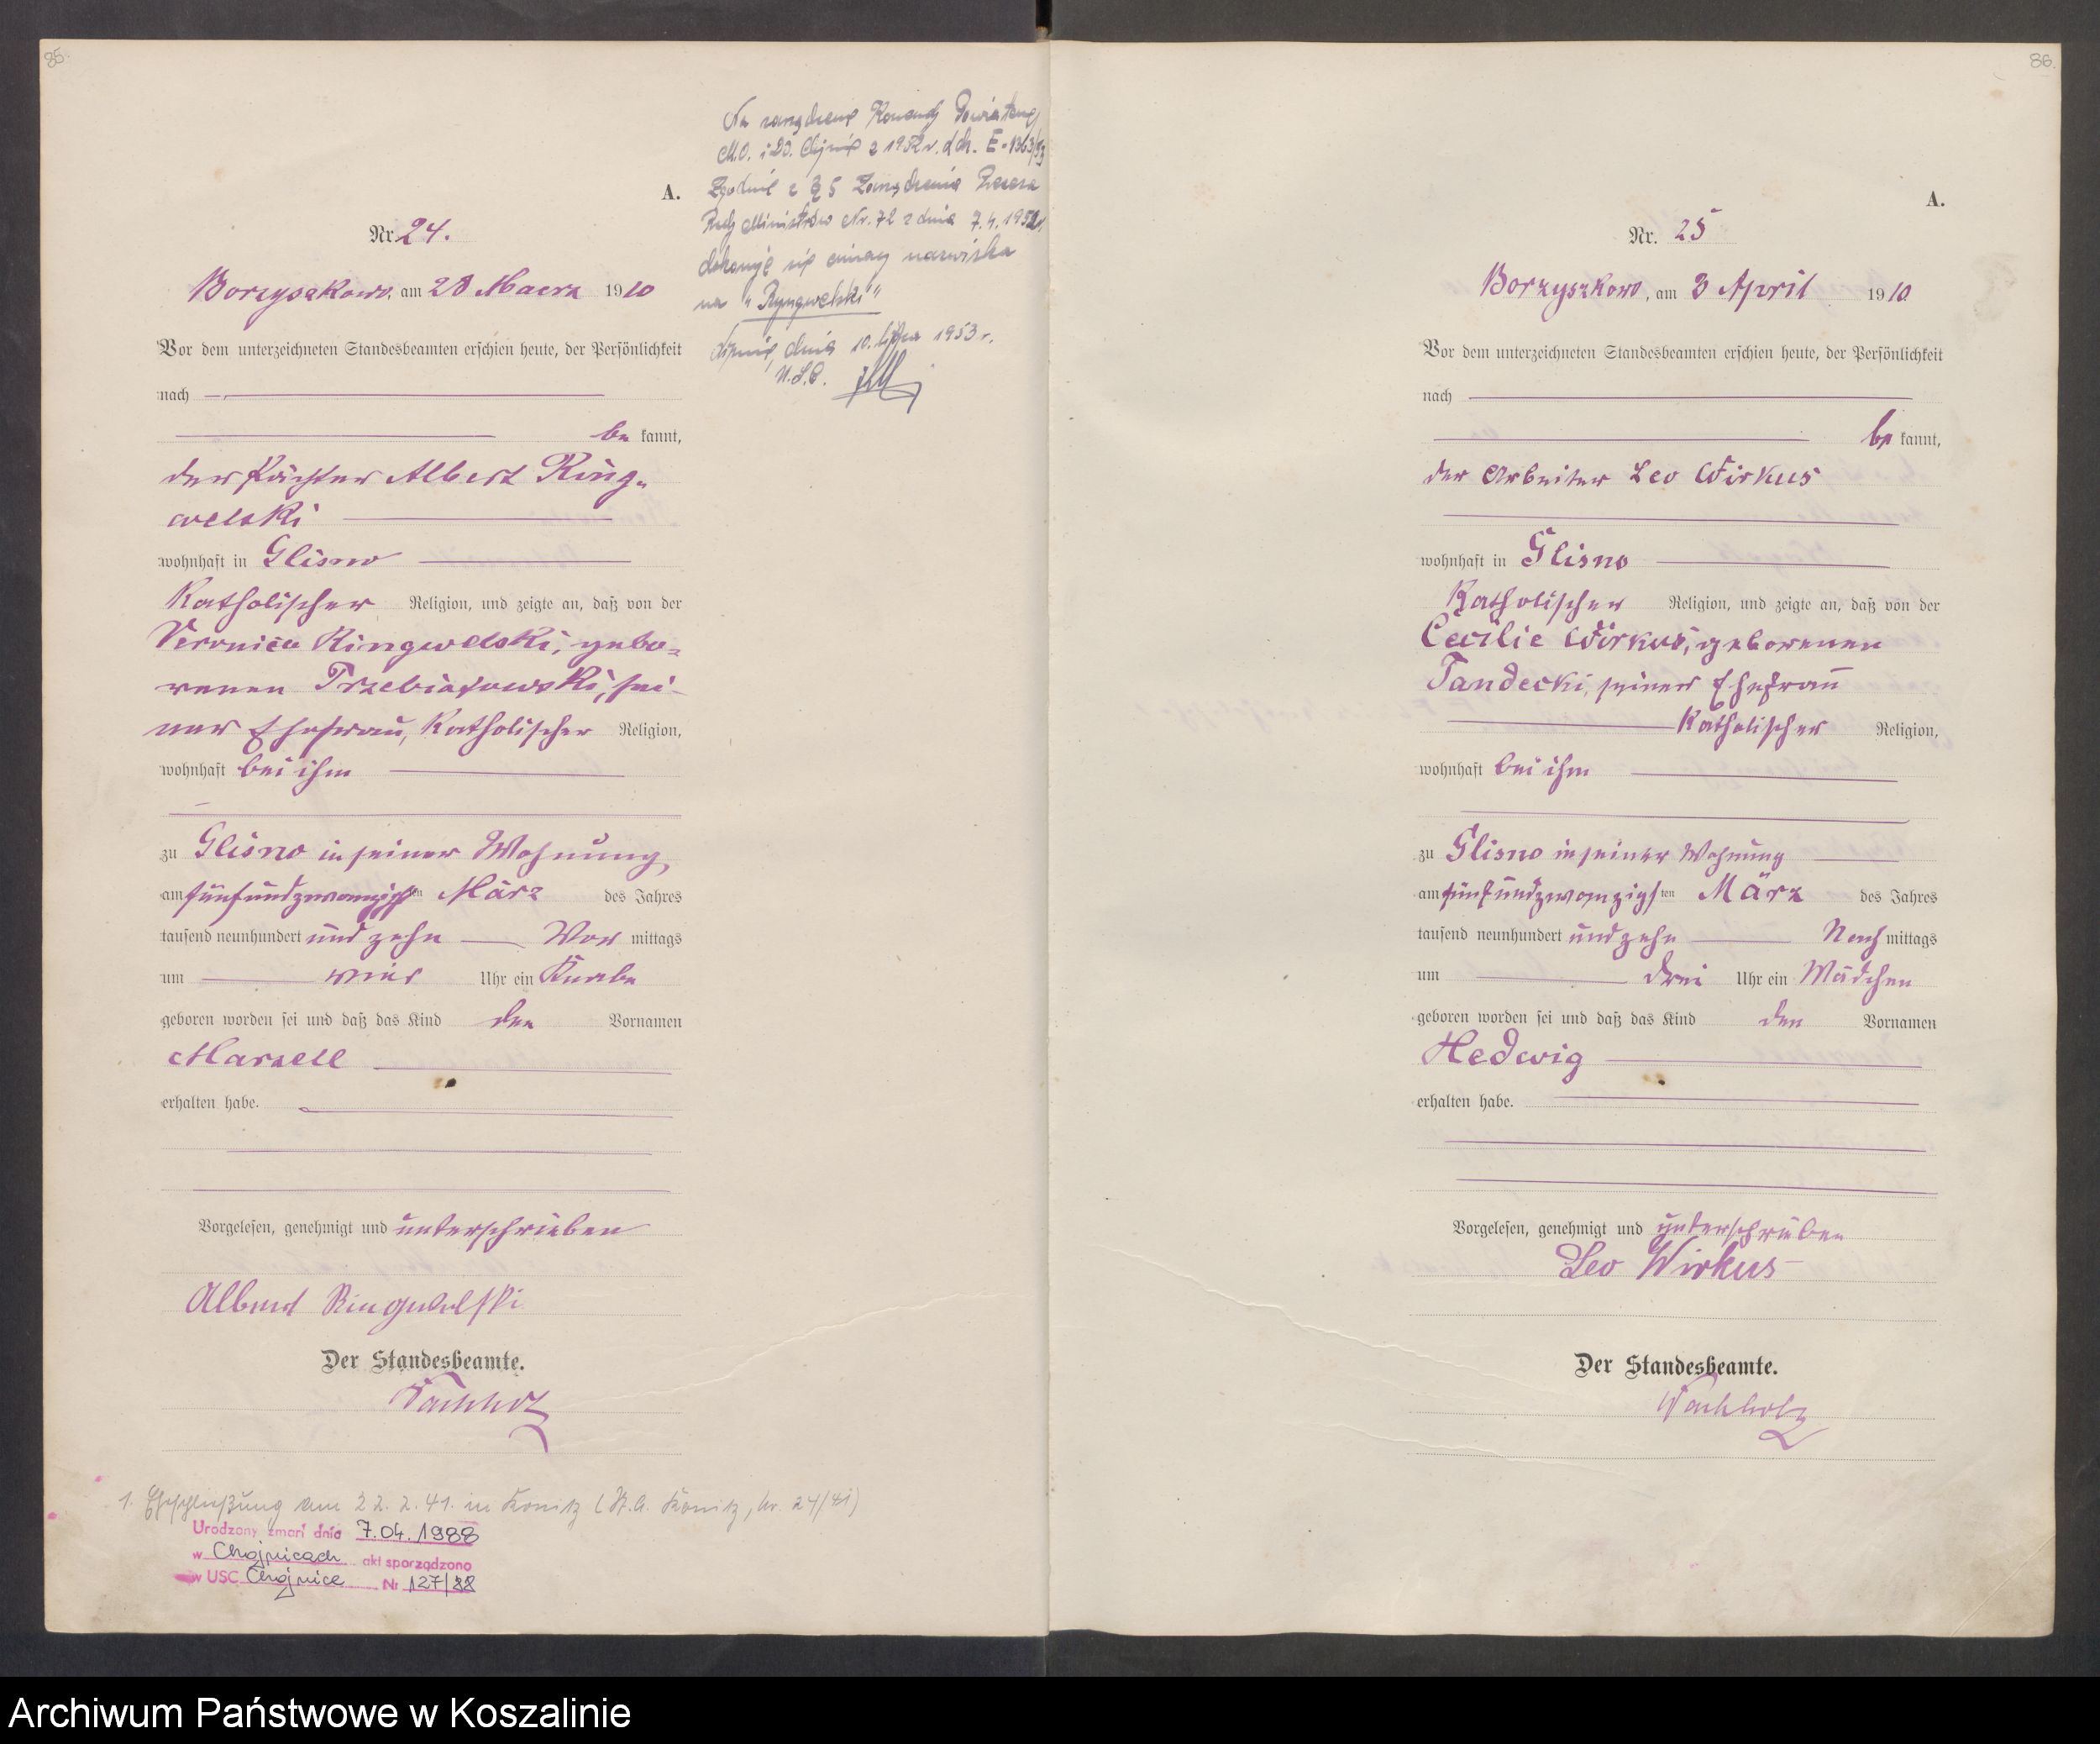 85.
A.
Nr. 24.
Borzyszkowo, am 28 Maerz 1910
Vor dem unterzeichneten Standesbeamten erschien heute, der Persönlichkeit
nach
be kannt,
der Pächter Albert Ring-
welski
wohnhaft in Glisno
Katholischer Religion, und zeigte an, daß von der
Veronica Ringwelski, gebo-
renen Trzebiatowski, sei-
ner Ehefrau, Katholischer Religion,
wohnhaft bei ihm
zu Glisno in seiner Wohnung
am fünfundzwanzigsten März des Jahres
tausend neunhundert und zehn Vor mittags
um vier Uhr ein Knabe
geboren worden sei und daß das Kind den Vornamen
Marzell
erhalten habe.
Vorgelesen, genehmigt und unterschrieben
Albert Ringwelski
Der Standesbeamte.
Wachholz
1. Eheschließung am 22.2.41. in Konitz (St.A. Konitz, Nr. 24/41)
Urodzony zmarł dnia 7.04.1988
w Chojnicach akt sporządzono
w USC Chojnice Nr 127/88
Na zarządzenie Komendy Powiatowej
M.O. i w Chojnicach z 1952 r. dch. E-1363/53
Zgodnie z § 5 Zarządzenia Prezesa
Rady Ministrów Nr. 72 z dnia 7.4.1952 r.
dokonuje się zmiany nazwiska
na "Ryngwelski"
Lipnica, dnia 10. lipca 1953 r.
U.S.C.
86.
A.
Nr. 25
Borzyszkowo, am 3 April 1910
Vor dem unterzeichneten Standesbeamten erschien heute, der Persönlichkeit
nach
be kannt,
der Arbeiter Leo Wirkus
wohnhaft in Glisno
Katholischer Religion, und zeigte an, daß von der
Cecilie Wirkus, geborenen
Tandecki, seiner Ehefrau
Katholischer Religion,
wohnhaft bei ihm
zu Glisno in seiner Wohnung
am fünfundzwanzigsten März des Jahres
tausend neunhundert und zehn Nach mittags
um drei Uhr ein Mädchen
geboren worden sei und daß das Kind den Vornamen
Hedwig
erhalten habe.
Vorgelesen, genehmigt und unterschrieben
Leo Wirkus
Der Standesbeamte.
Wachholz
Archiwum Państwowe w Koszalinie